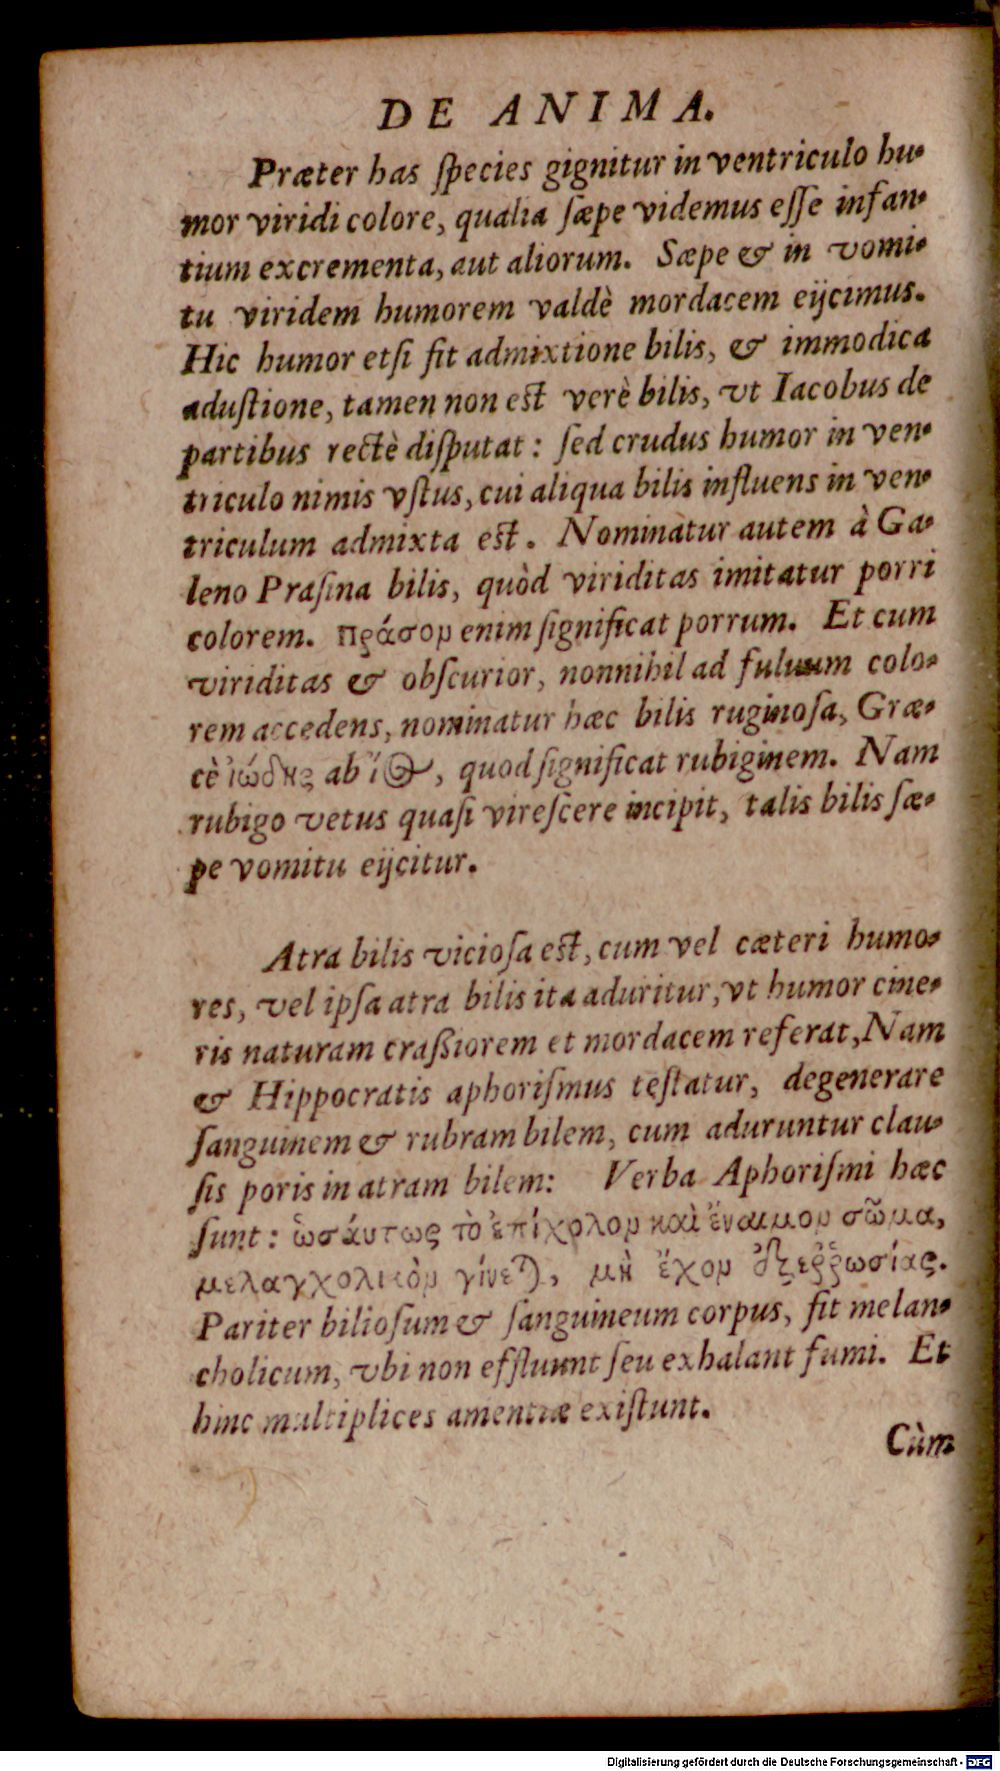 DE ANIMA.
Præter has ſpecies gignitur in ventriculo hu-
mor viridi colore, qualia ſæpe videmus eſſe infan-
tium excrementa, aut aliorum. Sæpe & in vomi-
tu viridem humorem valdè mordacem eijcimus.
Hic humor etſi fit admixtione bilis, & immodica
aduſtione, tamen non eſt verè bilis, vt Iacobus de
partibus rectè diſputat: ſed crudus humor in ven-
triculo nimis vſtus, cui aliqua bilis influens in ven-
triculum admixta eſt. Nominatur autem à Ga-
leno Praſina bilis, quòd viriditas imitatur porri
colorem. πράσον enim ſignificat porrum. Et cum
viriditas & obſcurior, nonnihil ad fuluum colo-
rem accedens, nominatur hæc bilis ruginoſa, Græ-
cè ἰώδης ab ἴος, quod ſignificat rubiginem. Nam
rubigo vetus quaſi vireſcere incipit, talis bilis ſæ-
pe vomitu eijcitur.
Atra bilis vicioſa eſt, cum vel cæteri humo-
res, vel ipſa atra bilis ita aduritur, vt humor cine-
ris naturam craßiorem et mordacem referat, Nam
& Hippocratis aphoriſmus teſtatur, degenerare
ſanguinem & rubram bilem, cum aduruntur clau-
ſis poris in atram bilem: Verba Aphoriſmi hæc
ſunt: ὡσάυτως τὸ ἐπίχολον καὶ ἔναιμον σῶμα,
μελαγχολικὸν γίνεται, μὴ ἔχον ἐξερῥωσίας.
Pariter bilioſum & ſanguineum corpus, fit melan-
cholicum, vbi non effluunt ſeu exhalant fumi. Et
hinc multiplices amentiæ exiſtunt.
Cùm
Digitalisierung gefördert durch die Deutsche Forschungsgemeinschaft - DFG